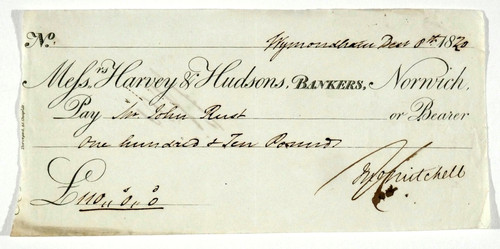 No. Wymondham Decr 8th. 1820
Messrs Harvey & Hudsons, BANKERS, Norwich,
Pay Mr John Rust or Bearer
One hundred & Ten Pounds
Mitchell
£110,, 0,, 0